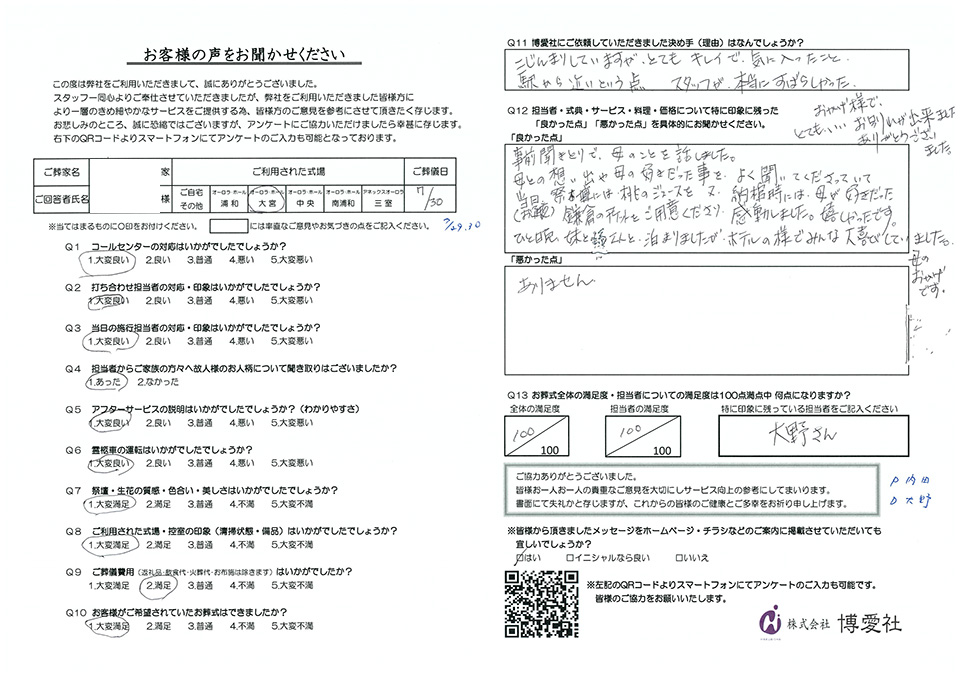 お客様の声をお聞かせください
この度は弊社をご利用いただきまして、誠にありがとうございました。
スタッフ一同心よりご奉仕させていただきましたが、弊社をご利用いただきました皆様方に
より一層のきめ細やかなサービスをご提供する為、皆様方のご意見を参考にさせて頂きたく存じます。
お悲しみのところ、誠に恐縮ではございますが、アンケートにご協力いただけましたら幸甚に存じます。
右下のQRコードよりスマートフォンにてアンケートのご入力も可能となっております。
ご葬家名 家 ご利用された式場 ご葬儀日
ご回答者氏名 様 ご自宅 その他 オーロラ・ホール 浦和 オーロラ・ホール 大宮 オーロラ・ホール 中央 オーロラ・ホール 南浦和 アネックスオーロラ 三室 7/30
※当てはまるものに○印をおつけください。 には率直なご意見やお気づきの点をご記入ください。 7/29.30
Q1 コールセンターの対応はいかがでしたでしょうか?
1.大変良い 2.良い 3.普通 4.悪い 5.大変悪い
Q2 打ち合わせ担当者の対応・印象はいかがでしたでしょうか?
1.大変良い 2.良い 3.普通 4.悪い 5.大変悪い
Q3 当日の施行担当者の対応・印象はいかがでしたでしょうか?
1.大変良い 2.良い 3.普通 4.悪い 5.大変悪い
Q4 担当者からご家族の方々へ故人様のお人柄について聞き取りはございましたか?
1.あった 2.なかった
Q5 アフターサービスの説明はいかがでしたでしょうか?(わかりやすさ)
1.大変良い 2.良い 3.普通 4.悪い 5.大変悪い
Q6 霊柩車の運転はいかがでしたでしょうか?
1.大変良い 2.良い 3.普通 4.悪い 5.大変悪い
Q7 祭壇・生花の質感・色合い・美しさはいかがでしたでしょうか?
1.大変満足 2.満足 3.普通 4.不満 5.大変不満
Q8 ご利用された式場・控室の印象(清掃状態・備品)はいかがでしたでしょうか?
1.大変満足 2.満足 3.普通 4.不満 5.大変不満
Q9 ご葬儀費用(返礼品・飲食代・火葬代・お布施は除きます)はいかがでしたか?
1.大変満足 2.満足 3.普通 4.不満 5.大変不満
Q10 お客様がご希望されていたお葬式はできましたか?
1.大変満足 2.満足 3.普通 4.不満 5.大変不満
Q11 博愛社にご依頼していただきました決め手(理由)はなんでしょうか?
こじんまりしていますが、とてもキレイで、気に入ったこと。
駅から近いという点 スタッフが、本当にすばらしかった。
Q12 担当者・式典・サービス・料理・価格について特に印象に残った
「良かった点」「悪かった点」を具体的にお聞かせください。
おかげ様で、
とてもいいお別れが出来ました
ありがとうござい
ました。
「良かった点」
事前聞きとりで、母のことを話しました。
母との想い出や母の好きだった事を、よく聞いてくださっていて
当日、祭壇には桃のジュースを 又、納棺時には、母が好きだった
(お花) 鎌倉の をご用意くださり、感動しました。嬉しかったです。
ひと晩、妹と さんと、泊まりましたが、ホテルの様でみんな大喜びしていました。
母の
おかげ
です。
「悪かった点」
ありません
Q13 お葬式全体の満足度・担当者についての満足度は100点満点中 何点になりますか?
全体の満足度 担当者の満足度 特に印象に残っている担当者をご記入ください
100/100 100/100 大野さん
ご協力ありがとうございました。
皆様お一人お一人の貴重なご意見を大切にしサービス向上の参考にしてまいります。
書面にて失礼かと存じますが、これからの皆様のご健康とご多幸をお祈り申し上げます。
P 内田
D 大野
※皆様から頂きましたメッセージをホームページ・チラシなどのご案内に掲載させていただいても
宜しいでしょうか?
□はい □イニシャルなら良い □いいえ
※左記のQRコードよりスマートフォンにてアンケートのご入力も可能です。
皆様のご協力をお願いいたします。
株式会社 博愛社